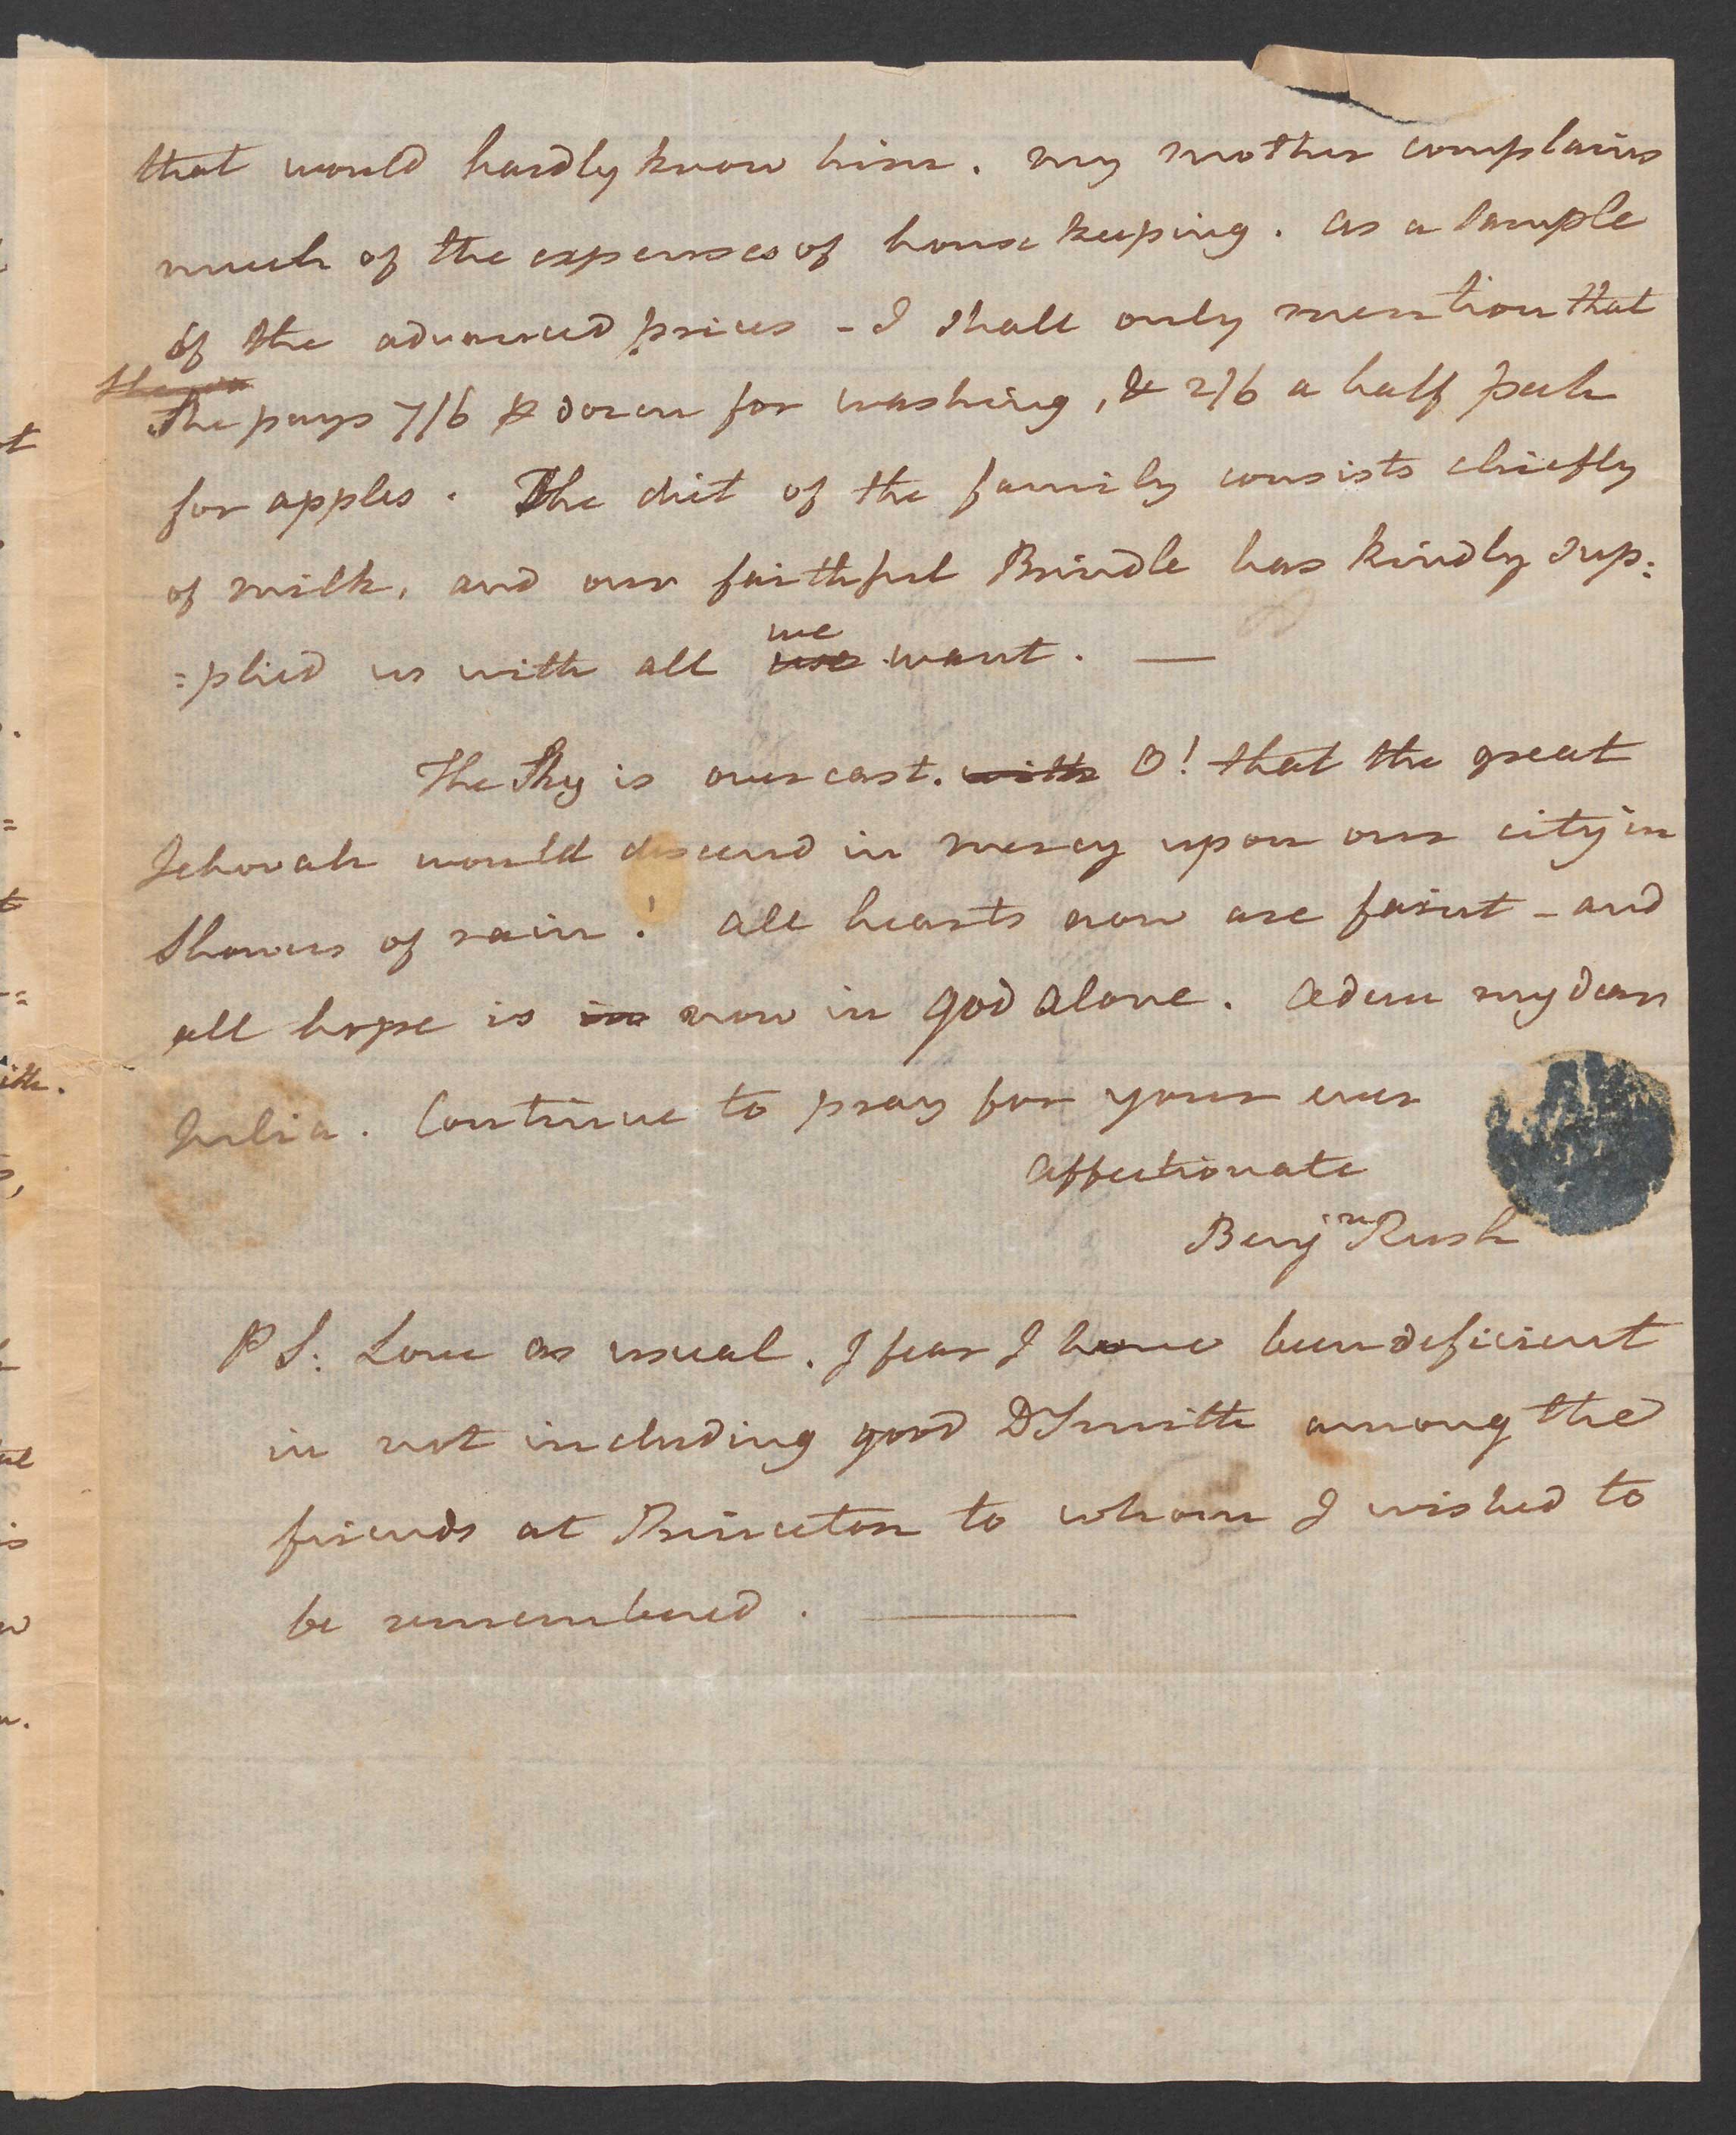 that would hardly know him. my mother complains
much of the expenses of house keeping. as a sample
of the advanced prices - I shall only mention that
She pays 7/6 ⅌ dozen for washing, & 2/6 a half peck
for apples. The diet of the family consists chiefly
of milk, and our faithful Brindle has kindly sup:
=plied us with all we want. —
The Sky is overcast. with O! that the great
Jehovah would descend in mercy upon our city in
Showers of rain! all hearts now are faint - and
all hope is in now in God alone. Adieu my dear
Julia. Continue to pray for your ever
affectionate
Benjn Rush
P S: Love as usual. I fear I have been deficient
in not including good Dr Smith among the
friends at Princeton to whom I wished to
be remembered. —
t
=
t
ith.
is